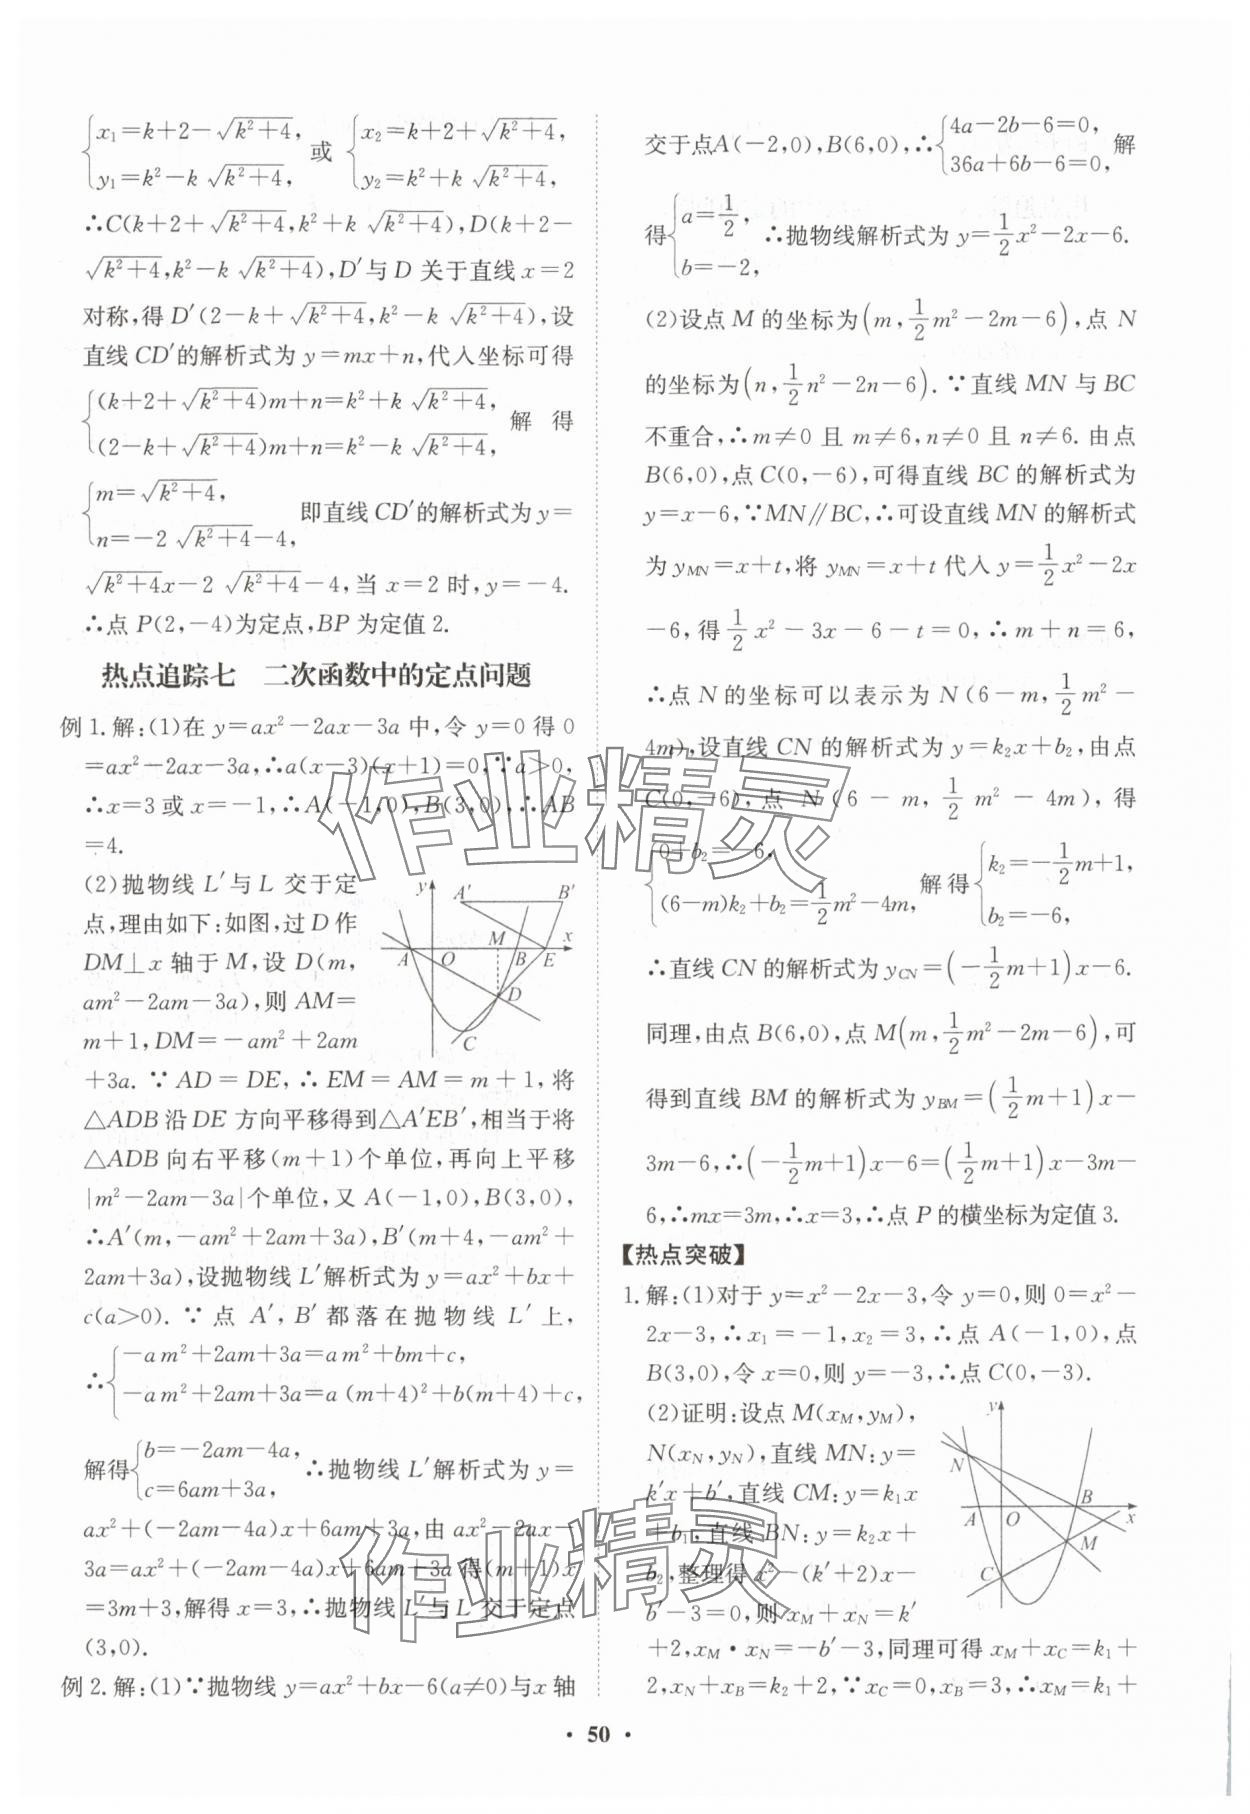 {x₁=k+2-√(k²+4), y₁=k²-k √(k²+4), 或 {x₂=k+2+√(k²+4), y₂=k²+k √(k²+4),
∴C(k+2+√(k²+4),k²+k √(k²+4)),D(k+2-
√(k²+4),k²-k √(k²+4)),D′与D 关于直线 x=2
对称,得 D′(2-k+√(k²+4),k²-k √(k²+4)),设
直线CD′的解析式为 y=mx+n,代入坐标可得
{(k+2+√(k²+4))m+n=k²+k √(k²+4), (2-k+√(k²+4))m+n=k²-k √(k²+4), 解 得
{m=√(k²+4), n=-2 √(k²+4)-4, 即直线CD′的解析式为 y=
√(k²+4)x-2 √(k²+4)-4,当 x=2 时,y=-4.
∴点 P(2,-4)为定点,BP 为定值 2.
热点追踪七 二次函数中的定点问题
例 1.解:(1)在 y=ax²-2ax-3a 中,令 y=0 得 0
=ax²-2ax-3a,∴a(x-3)(x+1)=0,∵a>0,
∴x=3 或 x=-1,∴A(-1,0),B(3,0),∴AB
=4.
(2)抛物线 L′与 L 交于定
点,理由如下:如图,过 D 作
DM⊥x 轴于 M,设 D(m,
am²-2am-3a),则 AM=
m+1,DM=-am²+2am
y A′ B′ M x A O B E D C
+3a. ∵ AD=DE,∴ EM=AM=m+1,将
△ADB沿DE方向平移得到△A′EB′,相当于将
△ADB 向右平移(m+1)个单位,再向上平移
|m²-2am-3a|个单位,又 A(-1,0),B(3,0),
∴A′(m,-am²+2am+3a),B′(m+4,-am²+
2am+3a),设抛物线 L′解析式为 y=ax²+bx+
c(a>0). ∵ 点 A′, B′ 都落在抛物线 L′ 上,
∴{-am²+2am+3a=am²+bm+c, -am²+2am+3a=a (m+4)²+b(m+4)+c,
解得{b=-2am-4a, c=6am+3a, ∴抛物线 L′解析式为 y=
ax²+(-2am-4a)x+6am+3a,由 ax²-2ax-
3a=ax²+(-2am-4a)x+6am+3a 得(m+1)x
=3m+3,解得 x=3,∴抛物线 L′与 L 交于定点
(3,0).
例 2.解:(1)∵抛物线 y=ax²+bx-6(a≠0)与 x 轴
交于点A(-2,0),B(6,0),∴{4a-2b-6=0, 36a+6b-6=0, 解
得{a=1/2, b=-2, ∴抛物线解析式为 y=1/2x²-2x-6.
(2)设点 M 的坐标为(m,1/2m²-2m-6),点 N
的坐标为(n,1/2n²-2n-6). ∵直线 MN 与 BC
不重合,∴m≠0 且 m≠6,n≠0 且 n≠6.由点
B(6,0),点 C(0,-6),可得直线 BC 的解析式为
y=x-6,∵MN∥BC,∴可设直线 MN 的解析式
为 y_MN=x+t,将 y_MN=x+t 代入 y=1/2x²-2x
-6,得 1/2x²-3x-6-t=0,∴m+n=6,
∴点 N 的坐标可以表示为 N(6-m,1/2m²-
4m),设直线 CN 的解析式为 y=k₂x+b₂,由点
C(0,-6),点 N(6-m,1/2m²-4m),得
{0+b₂=-6, (6-m)k₂+b₂=1/2m²-4m, 解得{k₂=-1/2m+1, b₂=-6,
∴直线 CN 的解析式为 y_CN=(-1/2m+1)x-6.
同理,由点 B(6,0),点 M(m,1/2m²-2m-6),可
得到直线 BM 的解析式为 y_BM=(1/2m+1)x-
3m-6,∴(-1/2m+1)x-6=(1/2m+1)x-3m-
6,∴mx=3m,∴x=3,∴点 P 的横坐标为定值 3.
【热点突破】
1.解:(1)对于 y=x²-2x-3,令 y=0,则 0=x²-
2x-3,∴x₁=-1,x₂=3,∴点 A(-1,0),点
B(3,0),令 x=0,则 y=-3,∴点 C(0,-3).
(2)证明:设点 M(x_M,y_M),
N(x_N,y_N),直线 MN:y=
k′x+b′,直线 CM:y=k₁x
+b₁,直线 BN:y=k₂x+
b₂,整理得 x²-(k′+2)x-
b′-3=0,则 x_M+x_N=k′
y N A O B x M C
+2,x_M·x_N=-b′-3,同理可得 x_M+x_C=k₁+
2,x_N+x_B=k₂+2,∵x_C=0,x_B=3,∴x_M=k₁+
· 50 ·
作业精灵
作业精灵